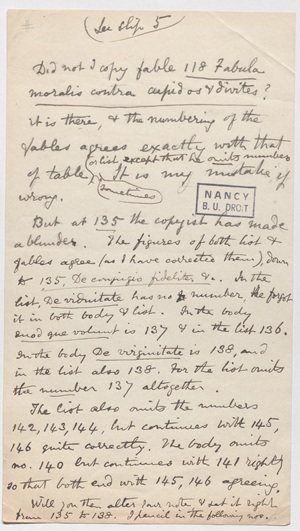 (See slip 5)
Did not I copy fable 118 Fabula
moralis contra cupidos & divites?
it is there, & the numbering of the
fables agrees exactly with that
(or list except that he omits numbers
sometimes)
of table. It is my mistake if
wrong.
NANCY
B. U. DROIT
But at 135 the copyist has made
a blunder. The figures of both list &
fables agree (as I have corrected them), down
to 135, De conjugio fideliter &c. In the
list, De viduitate has no number, he forgot
it in both body & list. In the body
quod que volunt is 137 & in the list 136.
In the body De virginitate is 138, and
in the list also 138. For the list omits
the number 137 altogether.
The list also omits the numbers
142, 143, 144, but continues with 145,
146 quite correctly. The body omits
no. 140 but continues with 141 rightly
so that both end with 145, 146 agreeing.
Will you then alter your note & put it right
from 135 to 138. I pencil in the following nos.